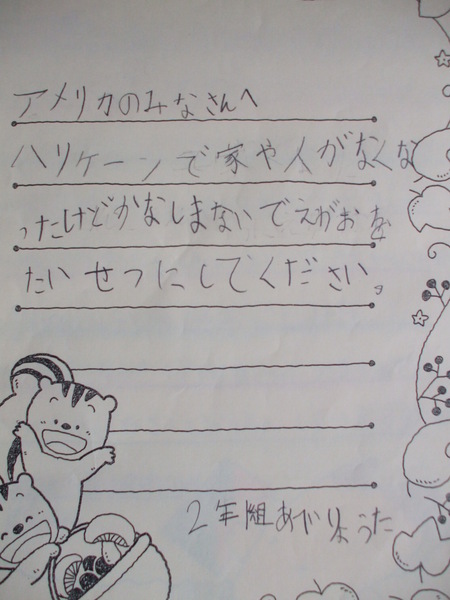 アメリカのみなさんへ
ハリケーンで家や人がなくな
ったけどかなしまないでえがおを
たいせつにしてください。
2年組